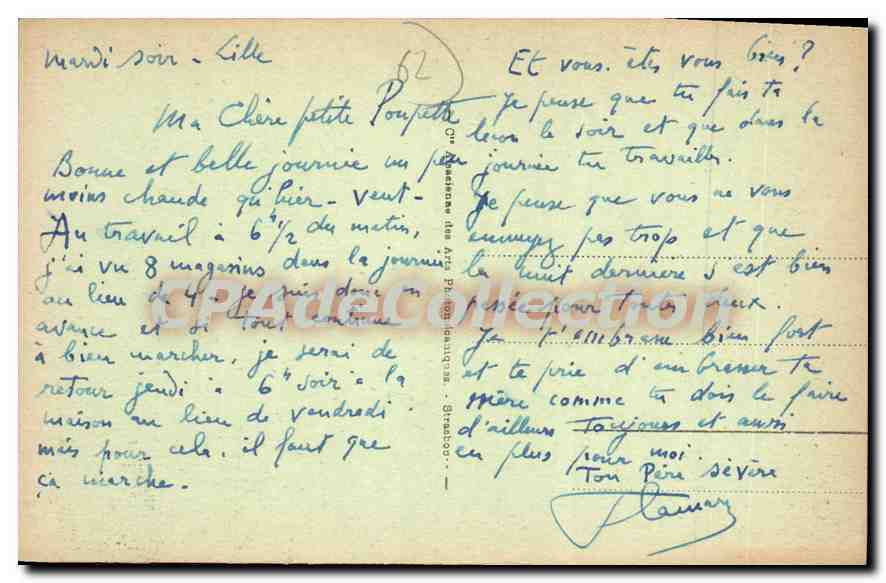 Mardi soir - Lille
62
Ma Chère petite Poupette
Bonne et belle journée un peu
moins chaude qu'hier - Vent -
Au travail à 6h 1/2 du matin,
j'ai vu 8 magasins dans la journée
au lieu de 4 - je suis donc en
avance et si tout continue
à bien marcher, je serai de
retour jeudi à 6h soir à la
maison au lieu de vendredi.
mais pour cela, il faut que
ça marche.
Cie Alsacienne des Arts Photomécaniques. - Strasbourg
Et vous. êtes vous bien?
Je pense que tu fais ta
leçon le soir et que dans la
journée tu travailles.
Je pense que vous ne vous
ennuyez pas trop et que
la nuit dernière s'est bien
passée pour toutes deux.
Je t'embrasse bien fort
et te prie d'embrasser ta
mère comme tu dois le faire
d'ailleurs toujours et aussi
en plus pour moi.
Ton Père sévère
CPAdeCollection.com